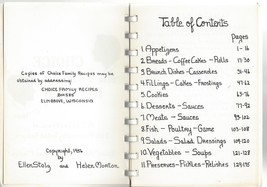 Copies of Choice Family Recipes may be
obtained by addressing
CHOICE FAMILY RECIPES
BOX 54
ELMGROVE, WISCONSIN
Copyright, 1956
by
Ellen Staly and Helen Monton
Table of Contents
pages
1 Appetizers 1-16
2 Breads - Coffee Cakes - Rolls 17-30
3 Brunch Dishes - Casseroles 31-46
4 Fillings - Cakes - Frostings 47-62
5 Cookies 63-76
6 Desserts - Sauces 77-92
7 Meats - Sauces 93-102
8 Fish - Poultry - Game 103-108
9 Salads - Salad Dressings 109-120
10 Vegetables - Soups 121-128
11 Preserves - Pickles - Relishes 129-135